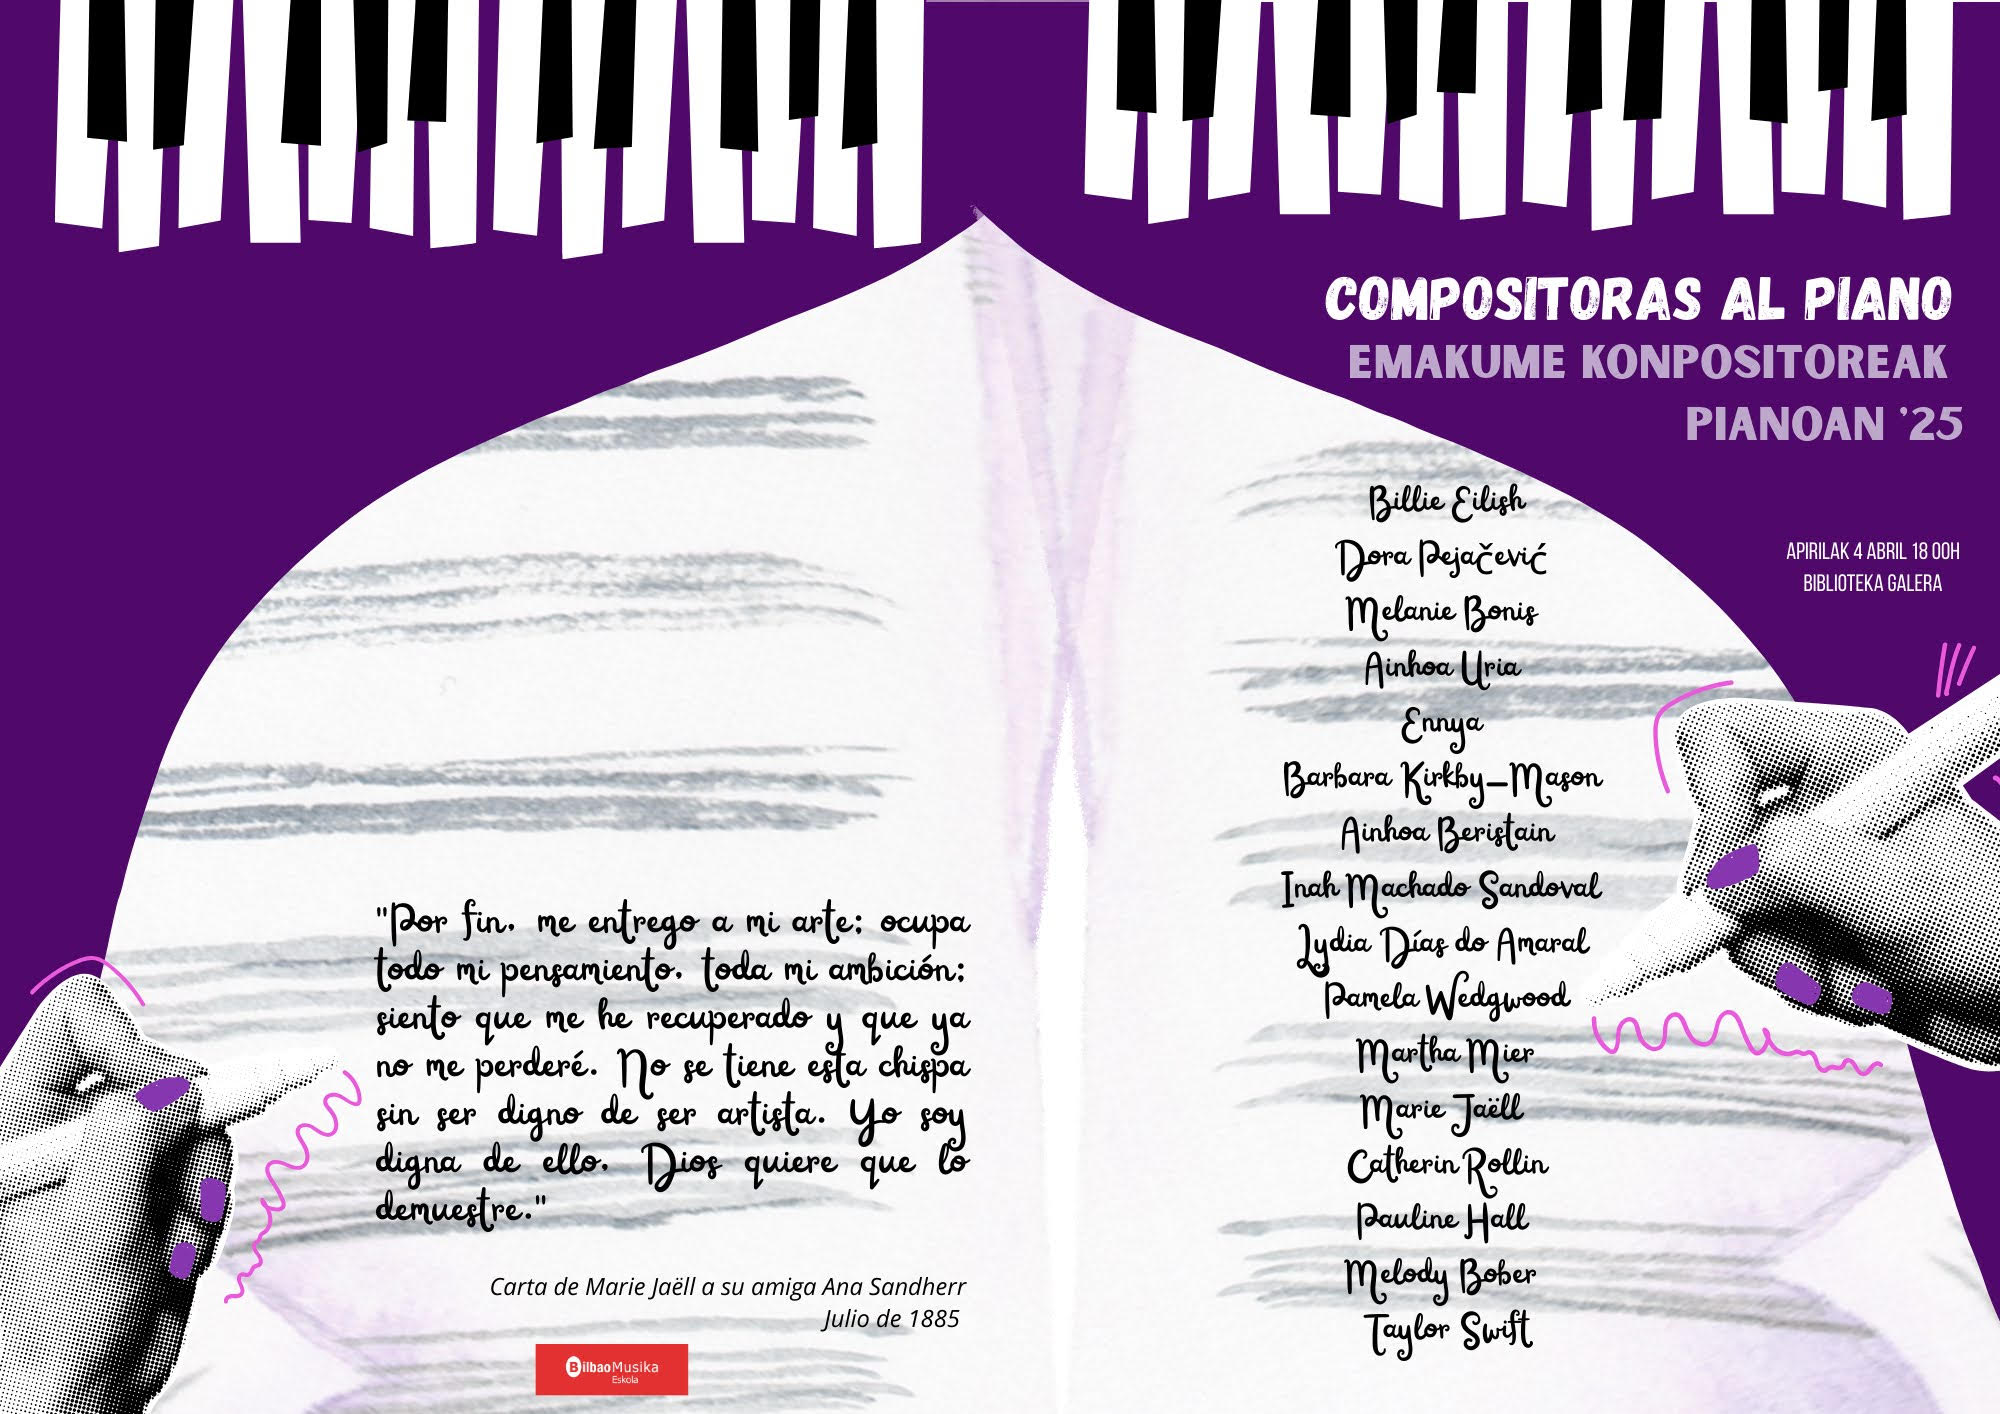 COMPOSITORAS AL PIANO
EMAKUME KONPOSITOREAK
PIANOAN '25
APIRILAK 4 ABRIL 18 00H
BIBLIOTEKA GALERA
Billie Eilish
Dora Pejačević
Melanie Bonis
Ainhoa Uria
Ennya
Barbara Kirkby-Mason
Ainhoa Beristain
Inah Machado Sandoval
Lydia Días do Amaral
Pamela Wedgwood
Martha Mier
Marie Jaëll
Catherin Rollin
Pauline Hall
Melody Bober
Taylor Swift
"Por fin, me entrego a mi arte; ocupa
todo mi pensamiento, toda mi ambición;
siento que me he recuperado y que ya
no me perderé. No se tiene esta chispa
sin ser digno de ser artista. Yo soy
digna de ello, Dios quiere que lo
demuestre."
Carta de Marie Jaëll a su amiga Ana Sandherr
Julio de 1885
BilbaoMusika
Eskola